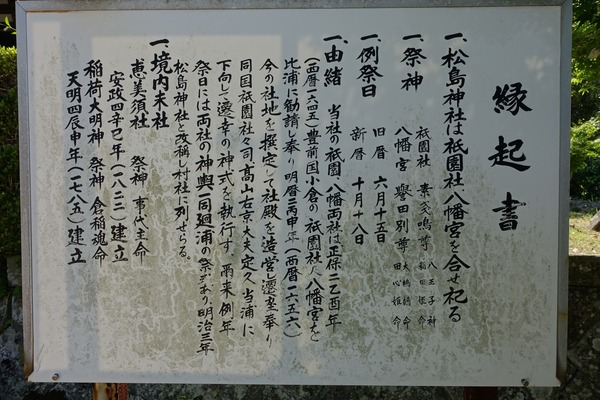 縁起書
一、松島神社は祇園社、八幡宮を合せ祀る
一、祭神
祇園社 素戔嗚尊 八王子神 稲田姫命
八幡宮 譽田別尊 大鷦鷯命 田心姫命
一、例祭日
旧暦 六月十五日
新暦 十月十八日
一、由緒 当社の祇園、八幡両社は正保二乙酉年
(西暦一六四五)豊前国小倉の祇園社、八幡宮を
比浦に勧請し奉り明暦二丙申年(西暦一六五六)
今の社地を撰定して社殿を造営し遷室奉り
同国祇園社々司、髙山右京大夫定久当浦に
下向して遷幸の神式を執行す、爾来例年
祭日には両社の神輿一同廻浦の祭があり、明治三年
松島神社と改稱、村社に列せらる。
一、境内末社
恵美須社 祭神 事代主命
安政四辛巳年(一八二一)建立
稲荷大明神 祭神 倉稲魂命
天明四辰申年(一七八五)建立